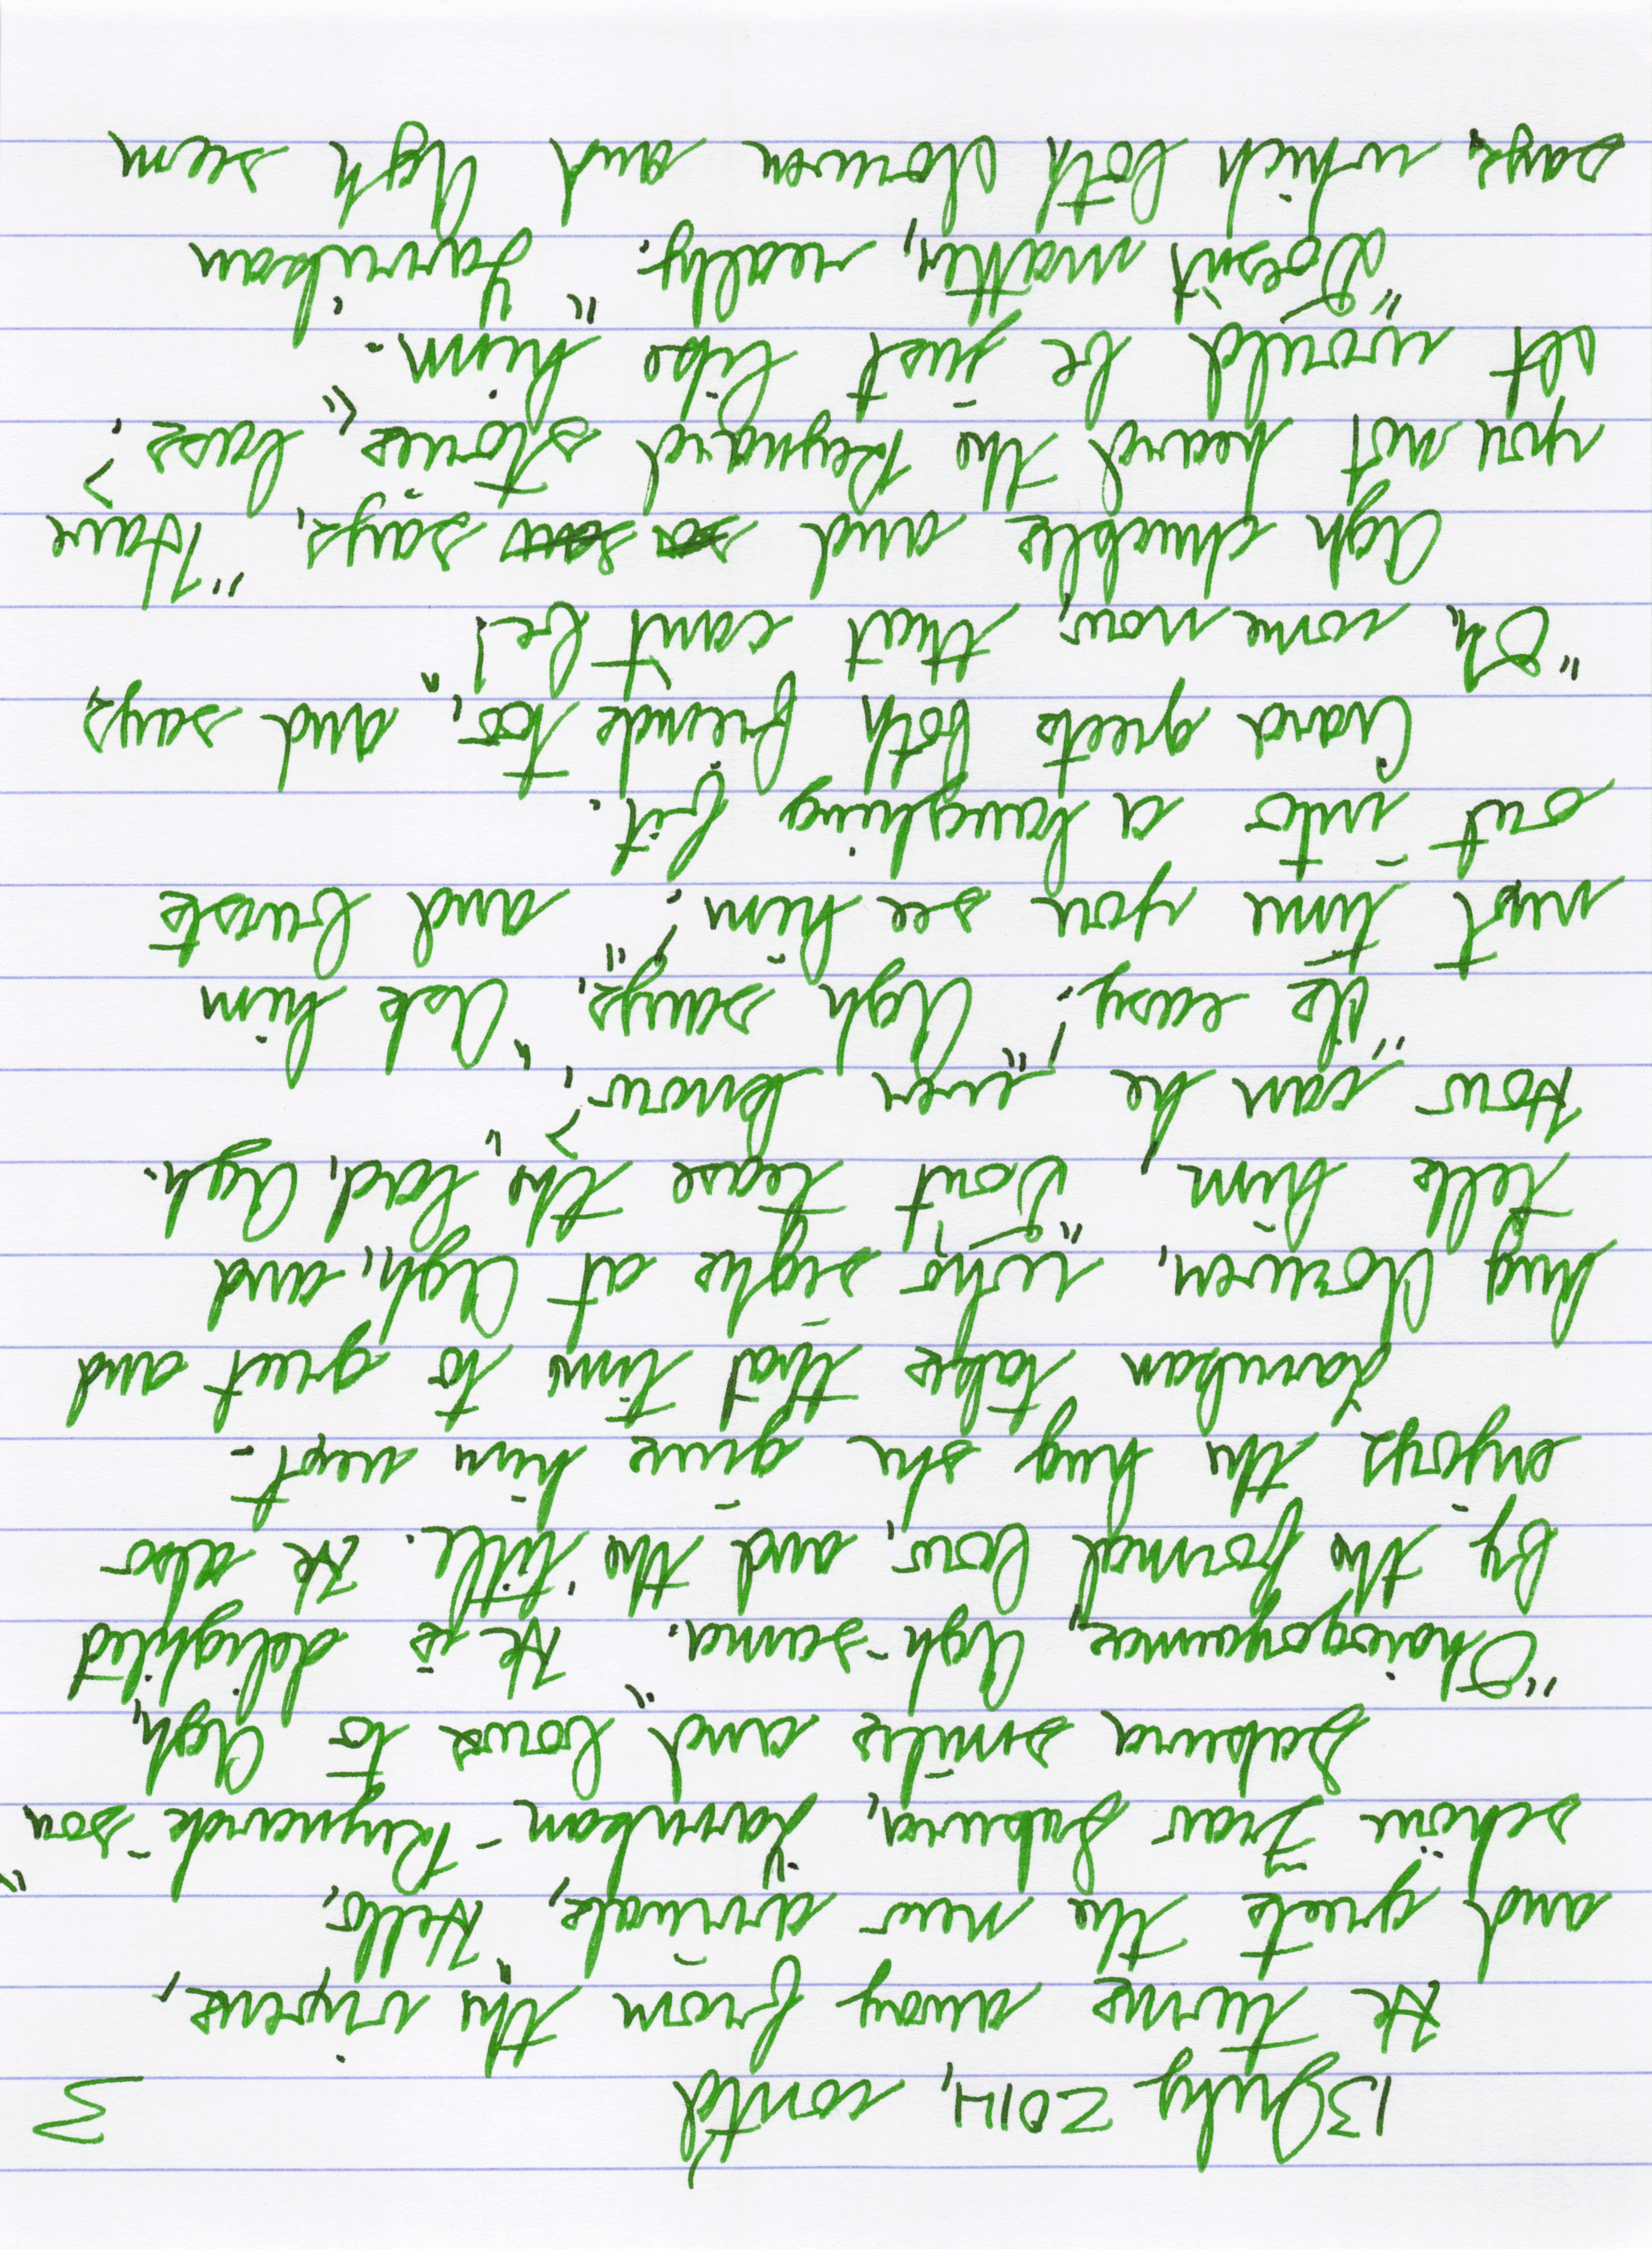 13 July 2014, cont'd 3
He turns away from the injeras,
and greets the new arrivals, "Hello,
schöne Frau Sakura, Yarrukan-Reynards-son"
Sakura smiles and bows to Agh,
"Ohaiogozaimas, Agh-sama." He is delighted
by the formal bow, and the title. He also
enjoys the hug she gives him next.
Yarrukan takes that time to greet and
hug Norwen, who sighs at Agh, and
tells him, "Don't tease the lad, Agh.
How can he even know?"
"Is easy!" Agh says, "Ask him
next time you see him!" and busts
out into a laughing fit.
Ciara greets both friends too, and says,
"Oh, come now, that can't be!"
Agh chuckles and says, "Have
you not heard the Reynard stories, lass?
It would be just like him."
"Doesn't matter, really." Yarrukan
says, which both Norwen and Agh seem